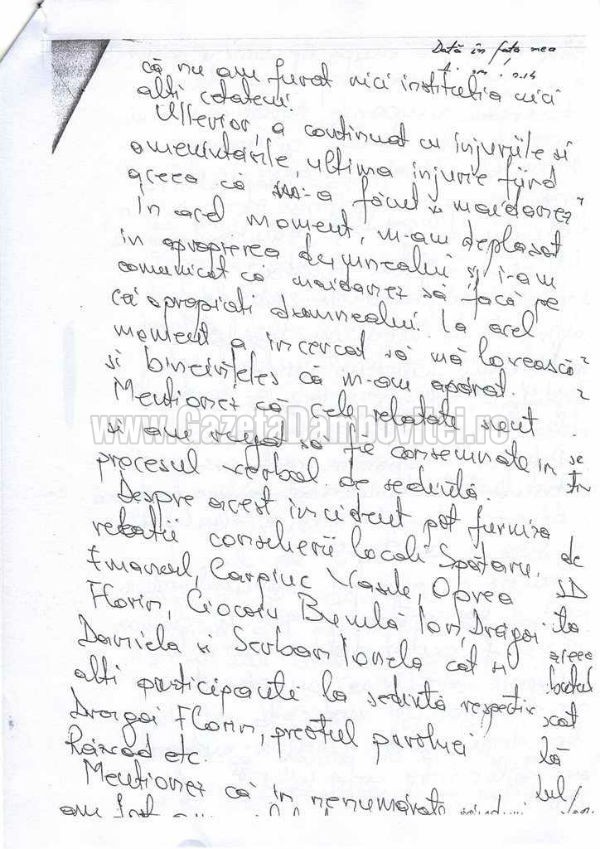 Dată în fața mea
că nu am furat nici instituția nici
alți cetățeni.
Ulterior, a continuat cu injuriile și
amenințările, ultima injurie fiind
aceea că m-a făcut maidanez
În acel moment, m-am deplasat
în apropierea dumnealui și i-am
comunicat că maidanez să facă pe
cei apropiați dumnealui. La acel
moment a încercat să mă lovească
și bineînțeles că m-am apărat.
Menționez că cele relatate sunt
www.GazetaDambovitei.ro
și am rugat să fie consemnate în
procesul verbal de ședință.
Despre acest incident pot furniza
relații consilierii locali Spătaru
Emanoil, Carpiuc Vasile, Oprea
Florin, Ciocoiu Ion, Drăgoi
Daniela și Serban Ionela cât și
alți participanți la ședința respectiv
Drăgoi Florin, preotul parohiei
etc.
Menționez că în nenumărate
am fost
se
de
SD
la
aceea
scat
lă